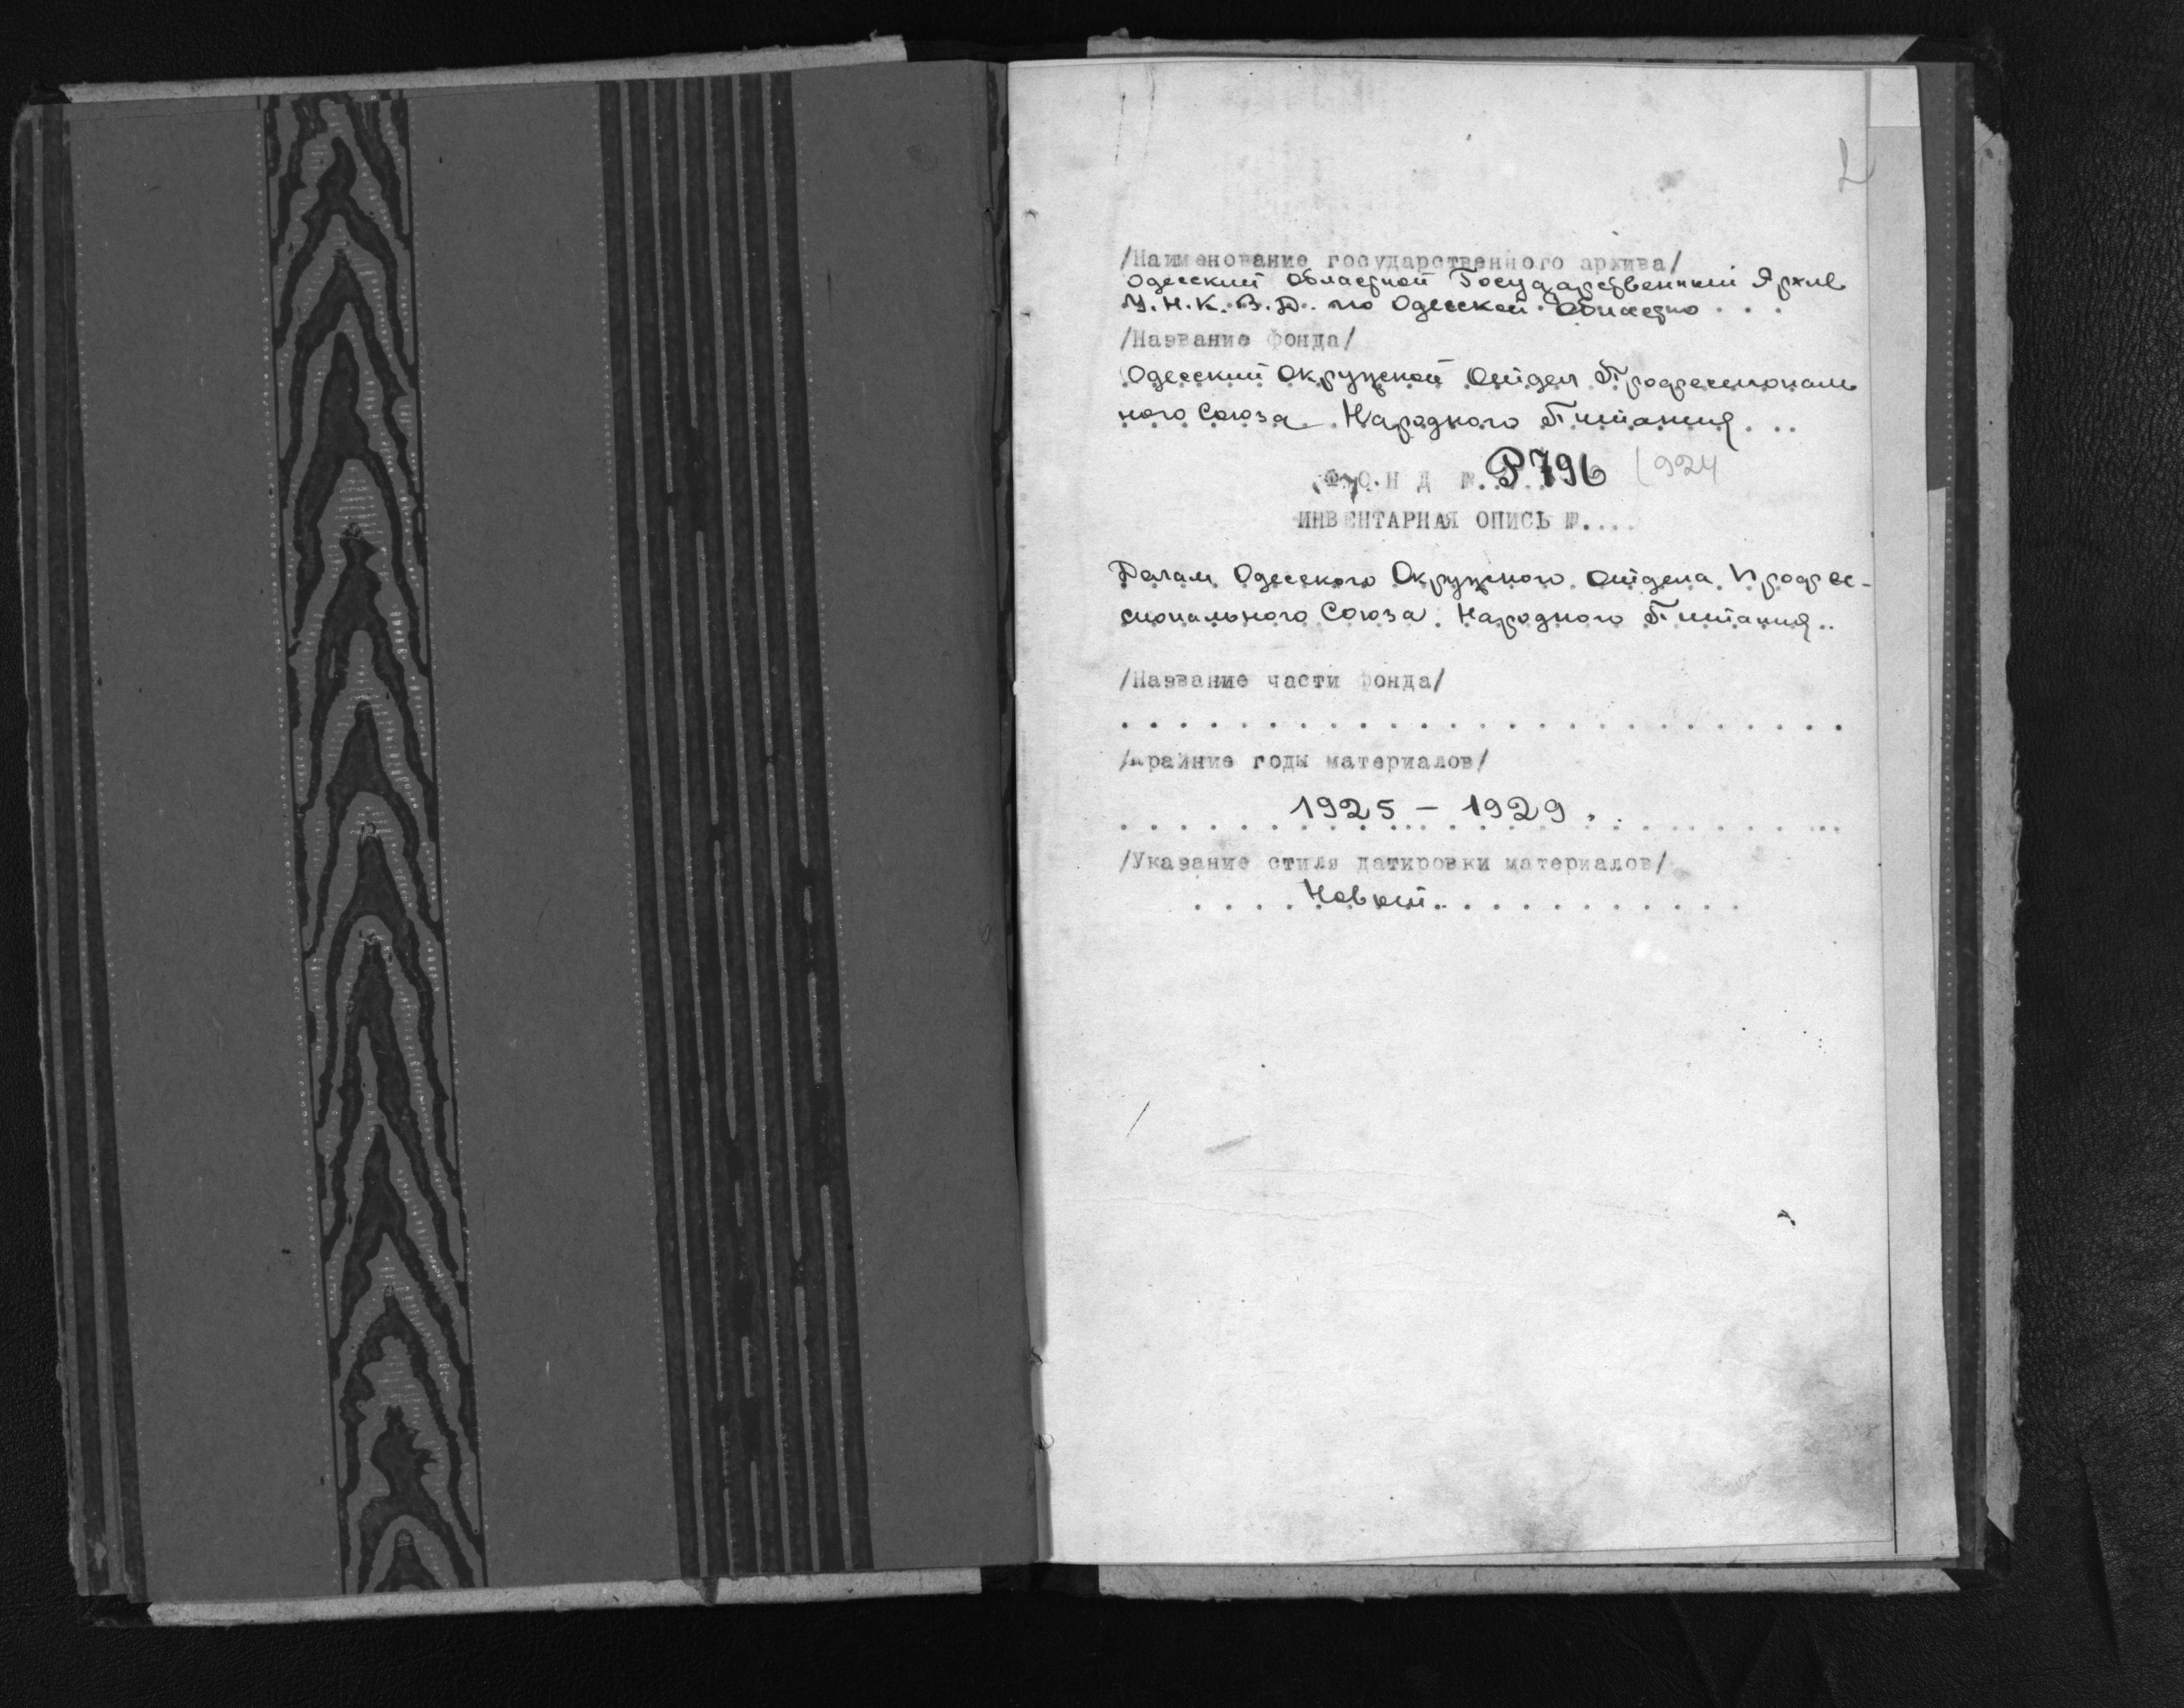 2
/Наименование государственного архива/
Одесский Областной Государственный Архив
У.Н.К.В.Д. по Одесской Области . . .
/Название фонда/
Одесский Окружной Отдел Профессиональ
ного Союза Народного Питания . . .
Ф О Н Д №. Р796 1924
ИНВЕНТАРНАЯ ОПИСЬ №....
Делам Одесского Окружного Отдела Профес-
сионального Союза Народного Питания..
/Название части фонда/
/Крайние годы материалов/
1925 – 1929.
/Указание стиля датировки материалов/
Новый